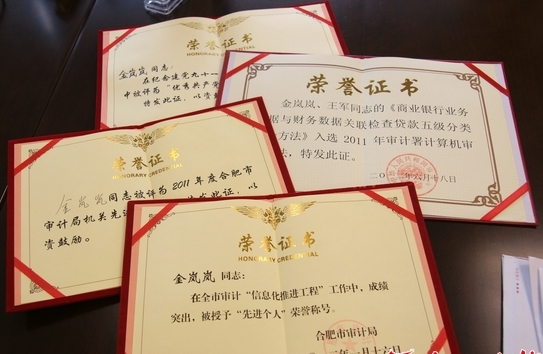 荣誉证书
HONORARY CREDENTIAL
金岚岚同志：
在纪念建党九十一
中被评为“优秀共产党
特发此证，以资
荣誉证书
金岚岚、王军同志的《商业银行业务
据与财务数据关联检查贷款五级分类
方法》入选2011年审计署计算机审
法，特发此证。
六月十八日
荣誉证书
HONORARY CREDENTIAL
金岚岚同志被评为2011年度合肥市
审计局机关先
特发此证，以
资鼓励。
荣誉证书
HONORARY CREDENTIAL
金岚岚同志：
在全市审计“信息化推进工程”工作中，成绩
突出，被授予“先进个人”荣誉称号。
合肥市审计局
年一月十六日